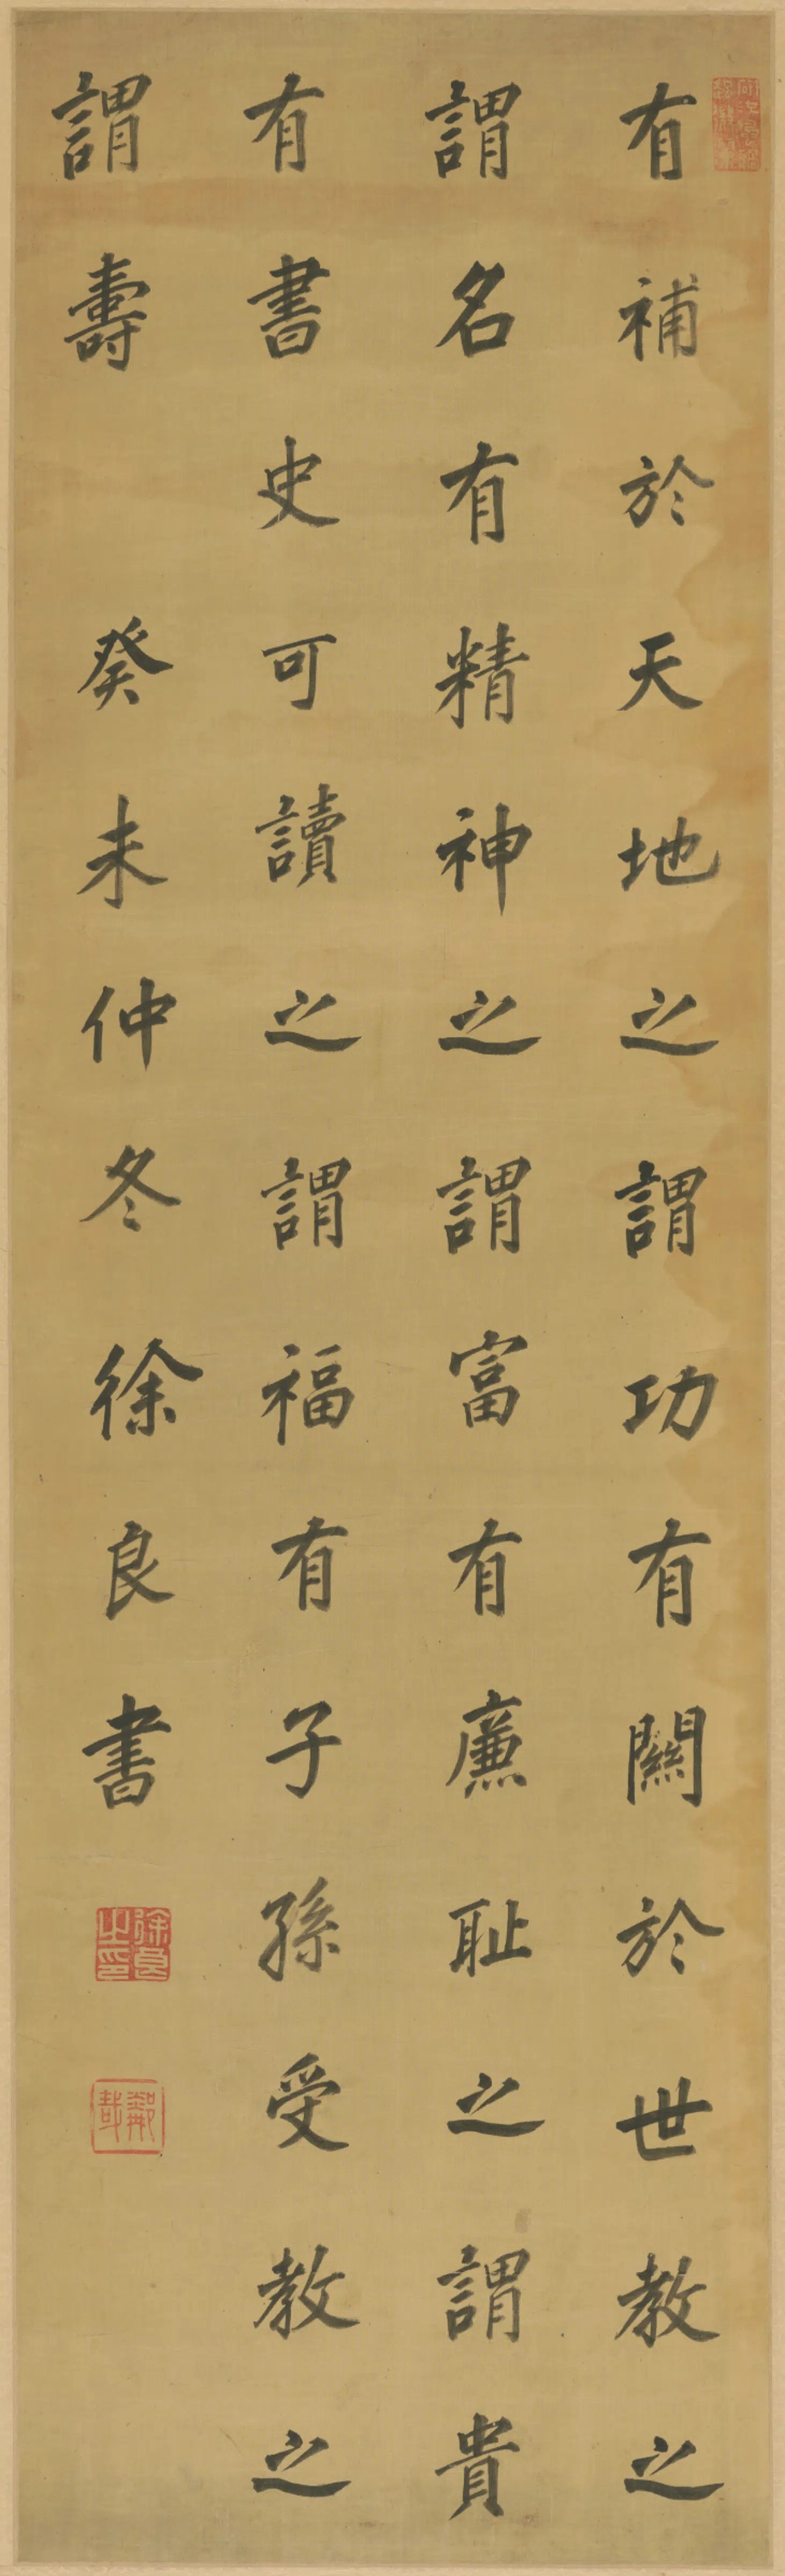 有補於天地之謂功有關於世教之
謂名有精神之謂富有廉耻之謂貴
有書史可讀之謂福有子孫受教之
謂壽
癸未仲冬徐良書
徐良之印